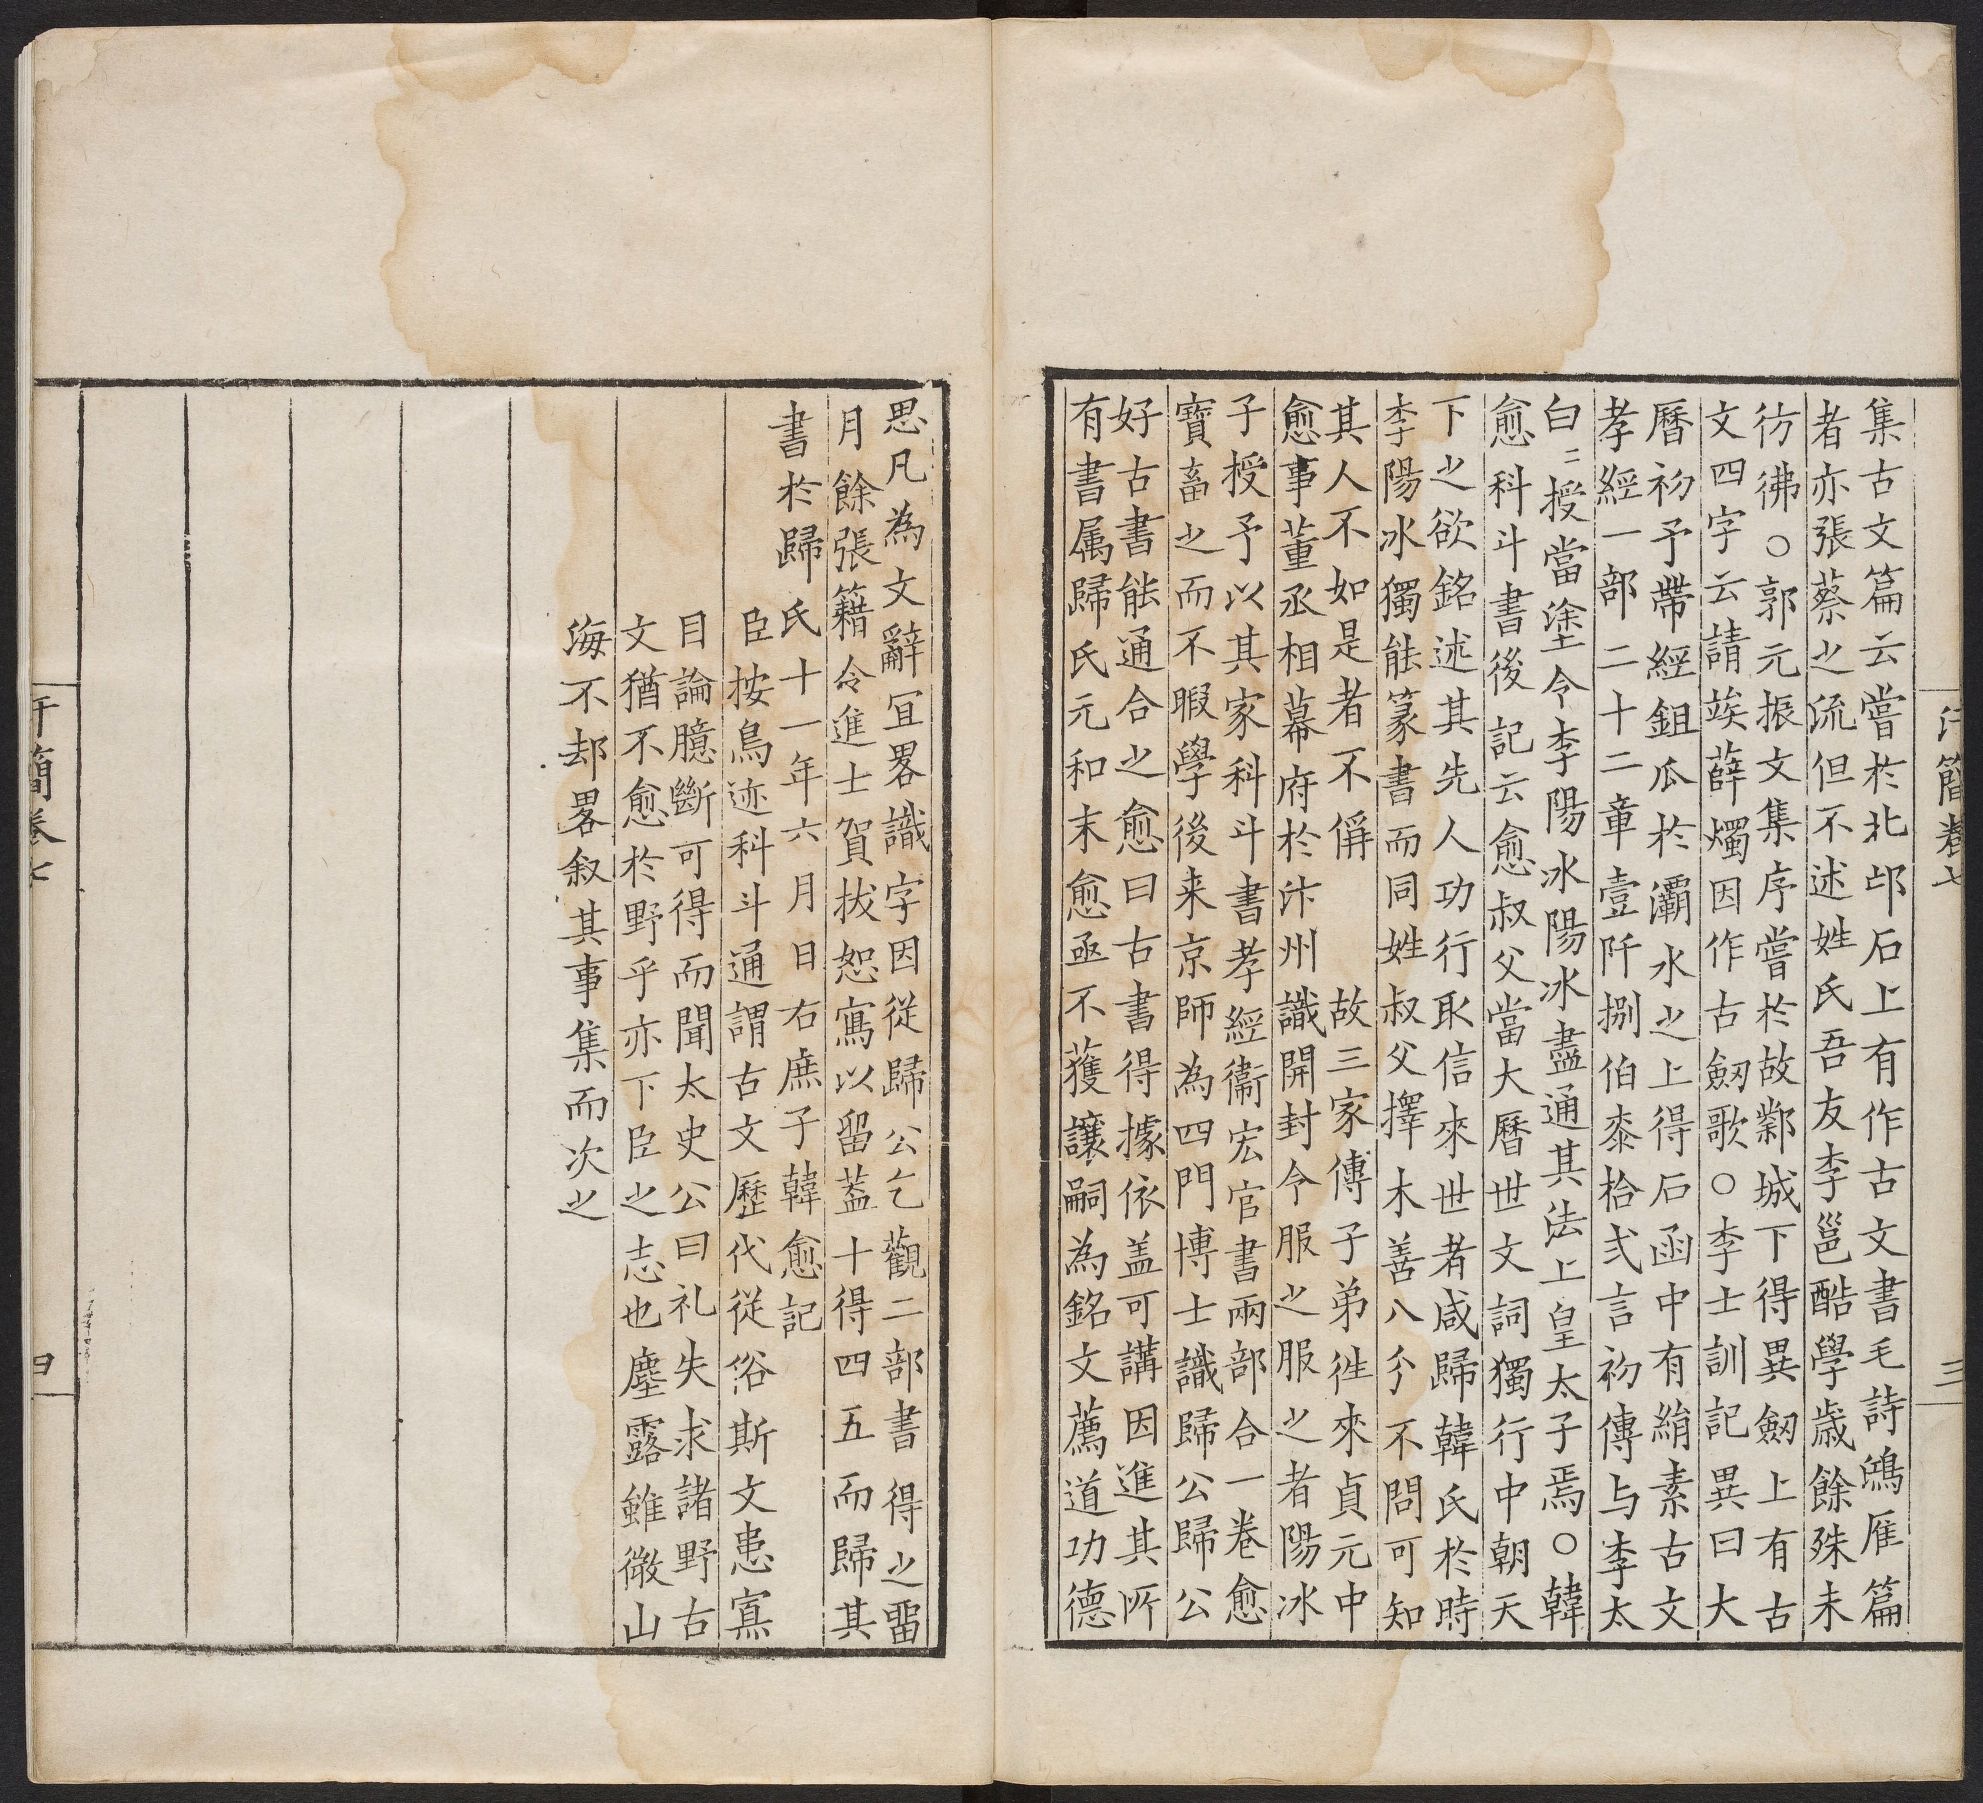 汗簡卷七 三
集古文篇云嘗於北邙石上有作古文書毛詩鴻雁篇
者亦張蔡之流但不述姓氏吾友李邕酷學歲餘殊未
彷彿○郭元振文集序嘗於故鄴城下得異劒上有古
文四字云請俟薛燭因作古劒歌○李士訓記異曰大
曆初予帶經鉏瓜於灞水之上得石函中有絹素古文
孝經一部二十二章壹阡捌伯桼拾弍言初傳与李太
白〻授當塗令李陽冰陽冰盡通其法上皇太子焉○韓
愈科斗書後記云愈叔父當大曆世文詞獨行中朝天
下之欲銘述其先人功行取信來世者咸歸韓氏於時
李陽冰獨能篆書而同姓叔父擇木善八分不問可知
其人不如是者不偁 故三家傳子弟徃來貞元中
愈事董丞相幕府於汴州識開封令服之服之者陽冰
子授予以其家科斗書孝經衞宏官書兩部合一卷愈
寶畜之而不暇學後来京師為四門博士識歸公歸公
好古書能通合之愈曰古書得據依盖可講因進其所
有書属歸氏元和末愈亟不獲讓嗣為銘文薦道功德
思凡為文辭冝畧識字因從歸公乞觀二部書得之畱
月餘張籍令進士賀拔恕寫以留蓋十得四五而歸其
書於歸氏十一年六月日右庶子韓愈記
臣按鳥迹科斗通謂古文歷代從俗斯文患寡
目論臆斷可得而聞太史公曰礼失求諸野古
文猶不愈於野乎亦下臣之志也塵露雖微山
海不却畧叙其事集而次之
汗簡卷七 四